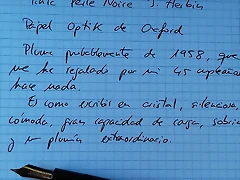 Tinta Perle Noire J. Herbin
Papel Optik de Oxford
Pluma probablemente de 1958, que
me he regalado por mi 45 cumpleaños
hace nada.
Es como escribir en cristal, silenciosa,
comoda, gran capacidad de carga, sobria
y un plumín extraordinario.